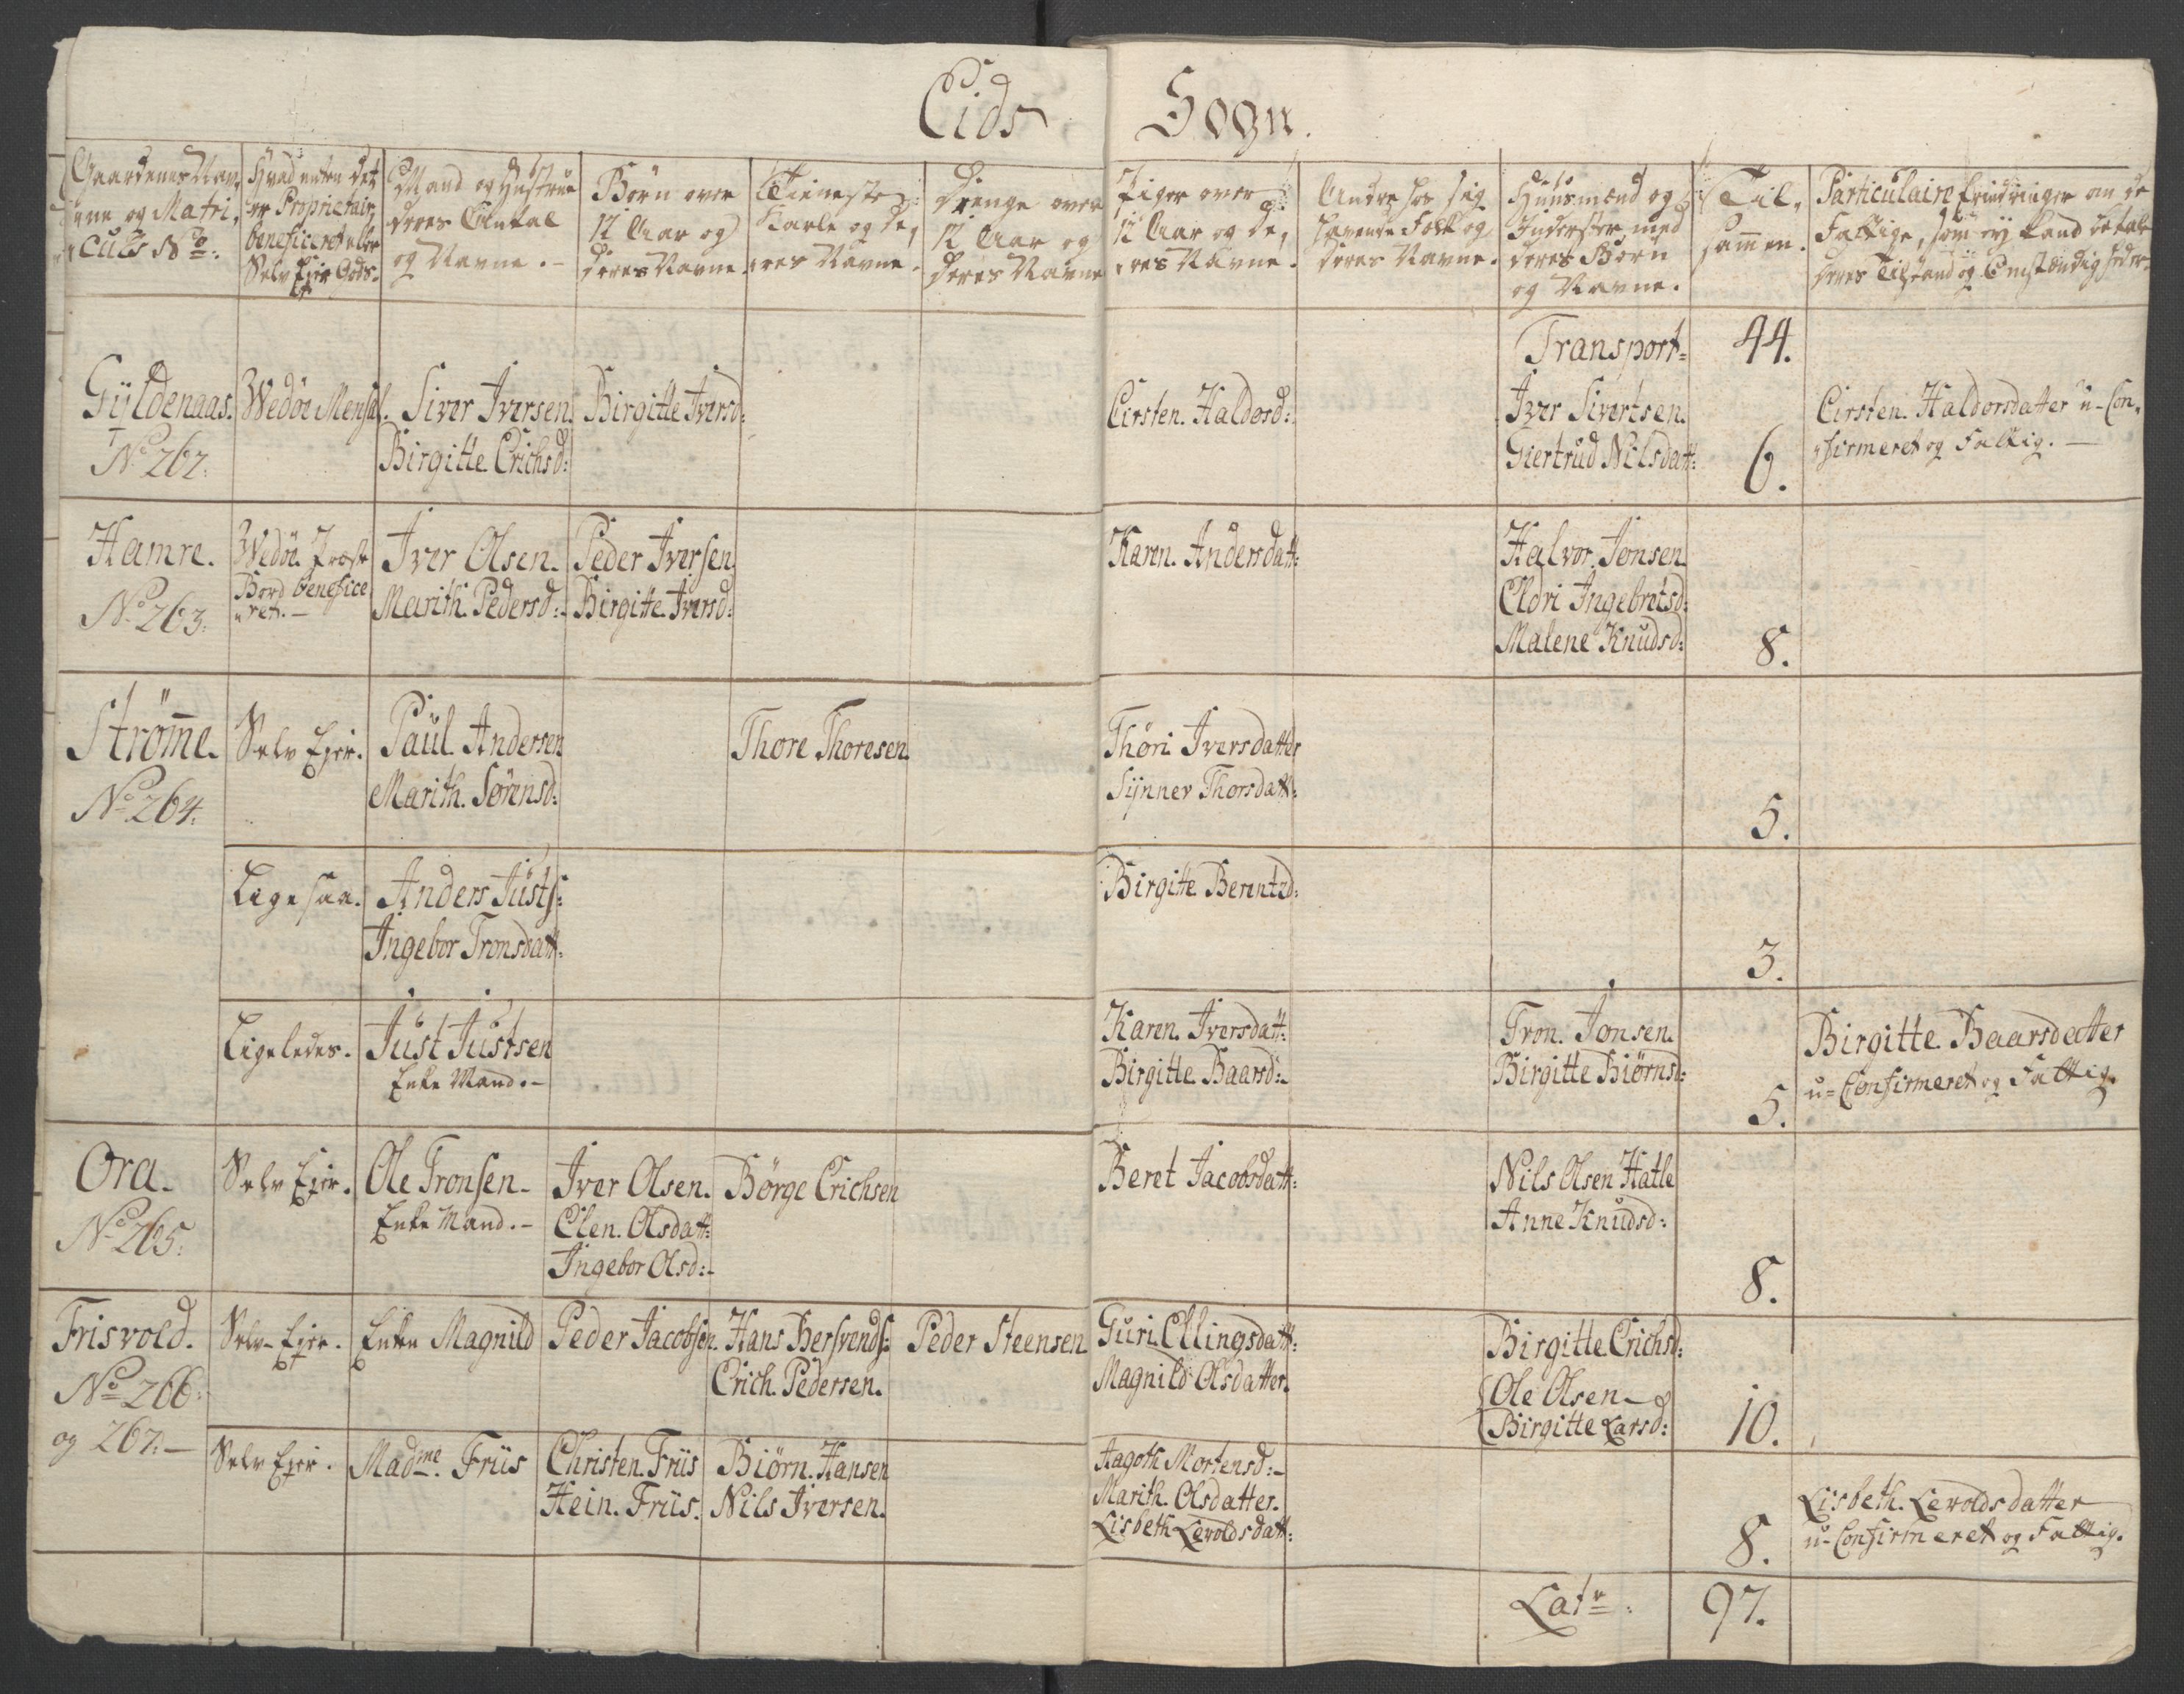 Eids Sogn.
Gaardenes Nav„
„ne og Matri„
„culs No:
Hvad enten det
er Proprietair,
beneficeret eller
Selv Ejer Gods.
Mand og Hustrue
deres Antal
og Navne.
Börn over
12 Aar og
deres Navne
Tieneste
Karle og de„
„res Navne.
Drenge over
12 Aar og
deres Navne
Piger over
12 Aar og de„
„res Navne.
Andre hos sig
havende Folk og
deres Navne.
Huusmænd og
Inderster med
deres Börn
og Navne.
Til„
sammen.
Particulaire Erindringer om de
Fattige, som ey kand betale
deres Tilstand og Omstændigheder
Transport= 44.
Gÿldenaas.
No 262.
Wedöe Mensal.
Siver Iversen.
Birgitte Erichsd:
Birgitte Iversd:
Cirsten. Haldorsd:
Iver Sivertsen.
Giertrud Nilsdatt:
6.
Cirsten. Haldorsdatter u-Con„
„firmeret og Fattig.
Hamre.
No 263.
Wedöe Præste
Bord benefice
„ret.
Iver Olsen.
Marith. Pedersd:
Peder Iversen.
Birgitte Iversd:
Karen. Andersdatt:
Halvor. Jonsen
Eldri Ingebretsd:
Malene Knudsd:
8.
Strömme.
No 264.
Selv Ejer.
Paul Andersen
Marith. Sörensd:
Thore Thoresen
Thöri Iversdatter
Sÿnnev Thorsdatt:
5.
Lige saa.
Anders Justs:
Ingebor Tronsdatt:
Birgitte Berentzd:
3.
Ligeledes.
Just Justsen
Enke Mand.
Karen. Iversdatt:
Birgitte Baarsd:
Tron. Jonsen.
Birgitte Biörnsd:
5.
Birgitte Baarsdatter
u-Confirmeret og Fattig.
Ora.
No 265.
Selv Ejer.
Ole Tronsen
Enke Mand.
Iver Olsen.
Elen. Olsdatt:
Ingebor Olsd:
Börge Erichsen
Beret Jacobsdatt:
Nils Olsen Hatle
Anne Knudsd:
8.
Frisvold.
No 266.
og 267.
Selv-Ejer.
Enken Magnild
Peder Jacobsen.
Hans Hersvends:
Erich. Pedersen.
Peder Steensen
Guri Ellingsdatt:
Magnild Olsdatter.
Birgitte Erichsd:
Ole Olsen
Birgitte Larsd:
10.
Selv Ejer.
Madme. Friis
Christen. Friis
Hein. Friis.
Biörn. Hansen
Nils Iversen.
Aagoth Mortensd:
Marith. Olsdatter.
Lisbeth Levoldsdatt:
8.
Lisbeth. Levoldsdatter
u-Confirmeret og Fattig.
Latr: 97.